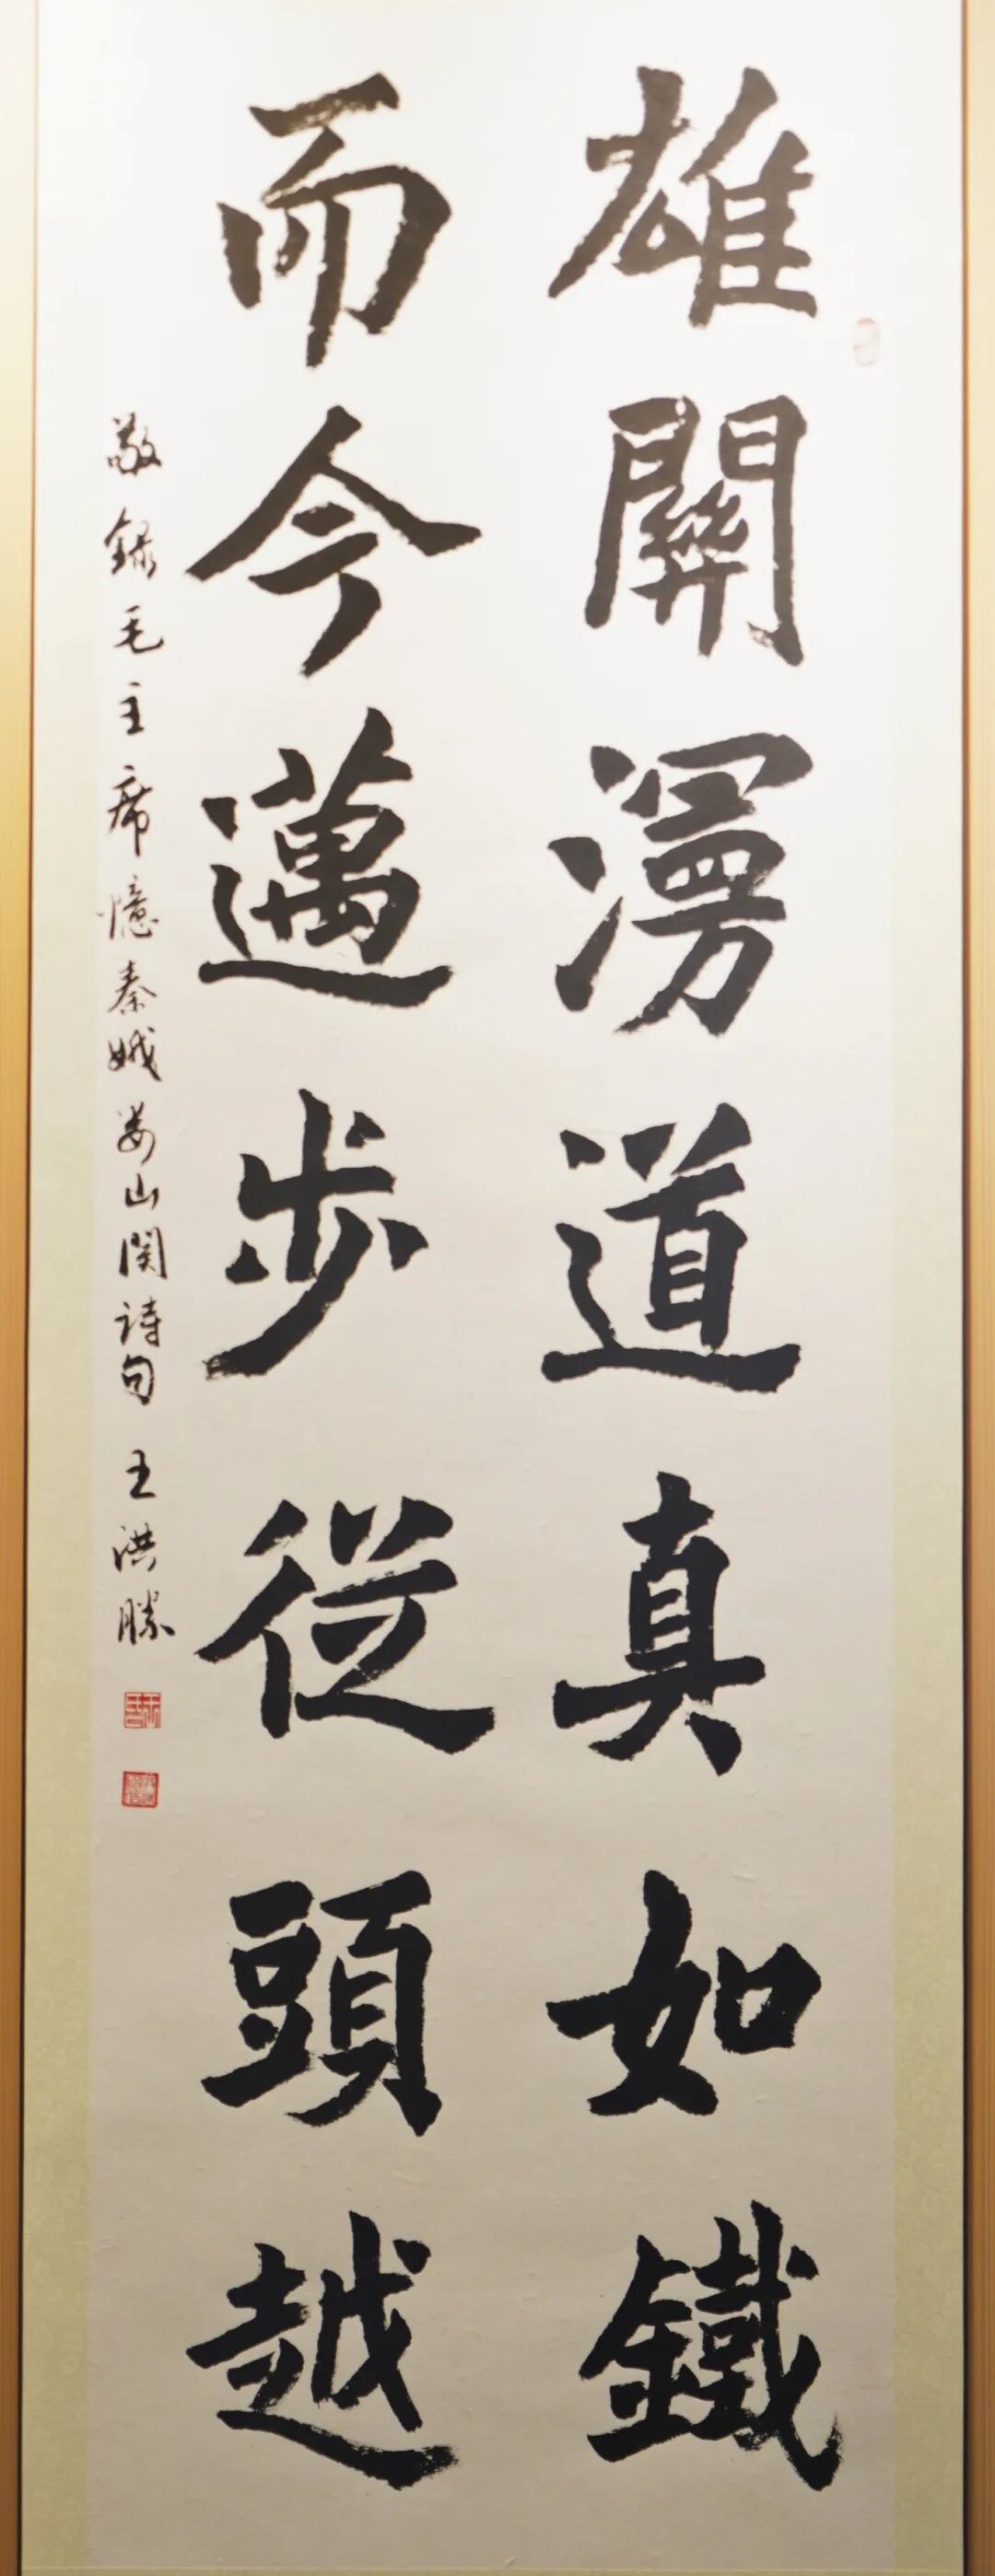 雄關漫道真如鐵
而今邁步從頭越
敬録毛主席憶秦娥婁山関詩句 王洪勝